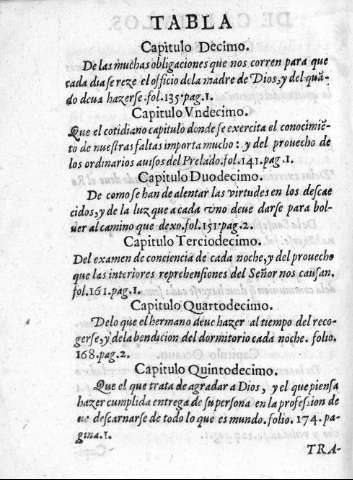 TABLA
Capitulo Decimo.
De las muchas obligaciones que nos corren para que
cada dia se reze el officio de la madre de Dios, y del quã
do deua hazerse. fol. 135. pag. 1.
Capitulo Vndecimo.
Que el cotidiano capitulo donde se exercita el conocimiẽ
to de nuestras faltas importa mucho: y del prouecho de
los ordinarios auisos del Prelado. fol. 141. pag. 1.
Capitulo Duodecimo.
De como se han de alentar las virtudes en los descae
cidos, y de la luz que a cada vno deue darse para bol-
uer al camino que dexo. fol. 151. pag. 2.
Capitulo Terciodecimo.
Del examen de conciencia de cada noche, y del prouecho
que las interiores reprehensiones del Señor nos causan.
fol. 161. pag. 1.
Capitulo Quartodecimo.
De lo que el hermano deue hazer al tiempo del reco-
gerse, y de la bendicion del dormitorio cada noche. folio.
168. pag. 2.
Capitulo Quintodecimo.
Que el que trata de agradar a Dios, y el que piensa
hazer cumplida entrega de su persona en la profession de
ue descarnarse de todo lo que es mundo. folio. 174. pa-
gina. 1.
TRA-